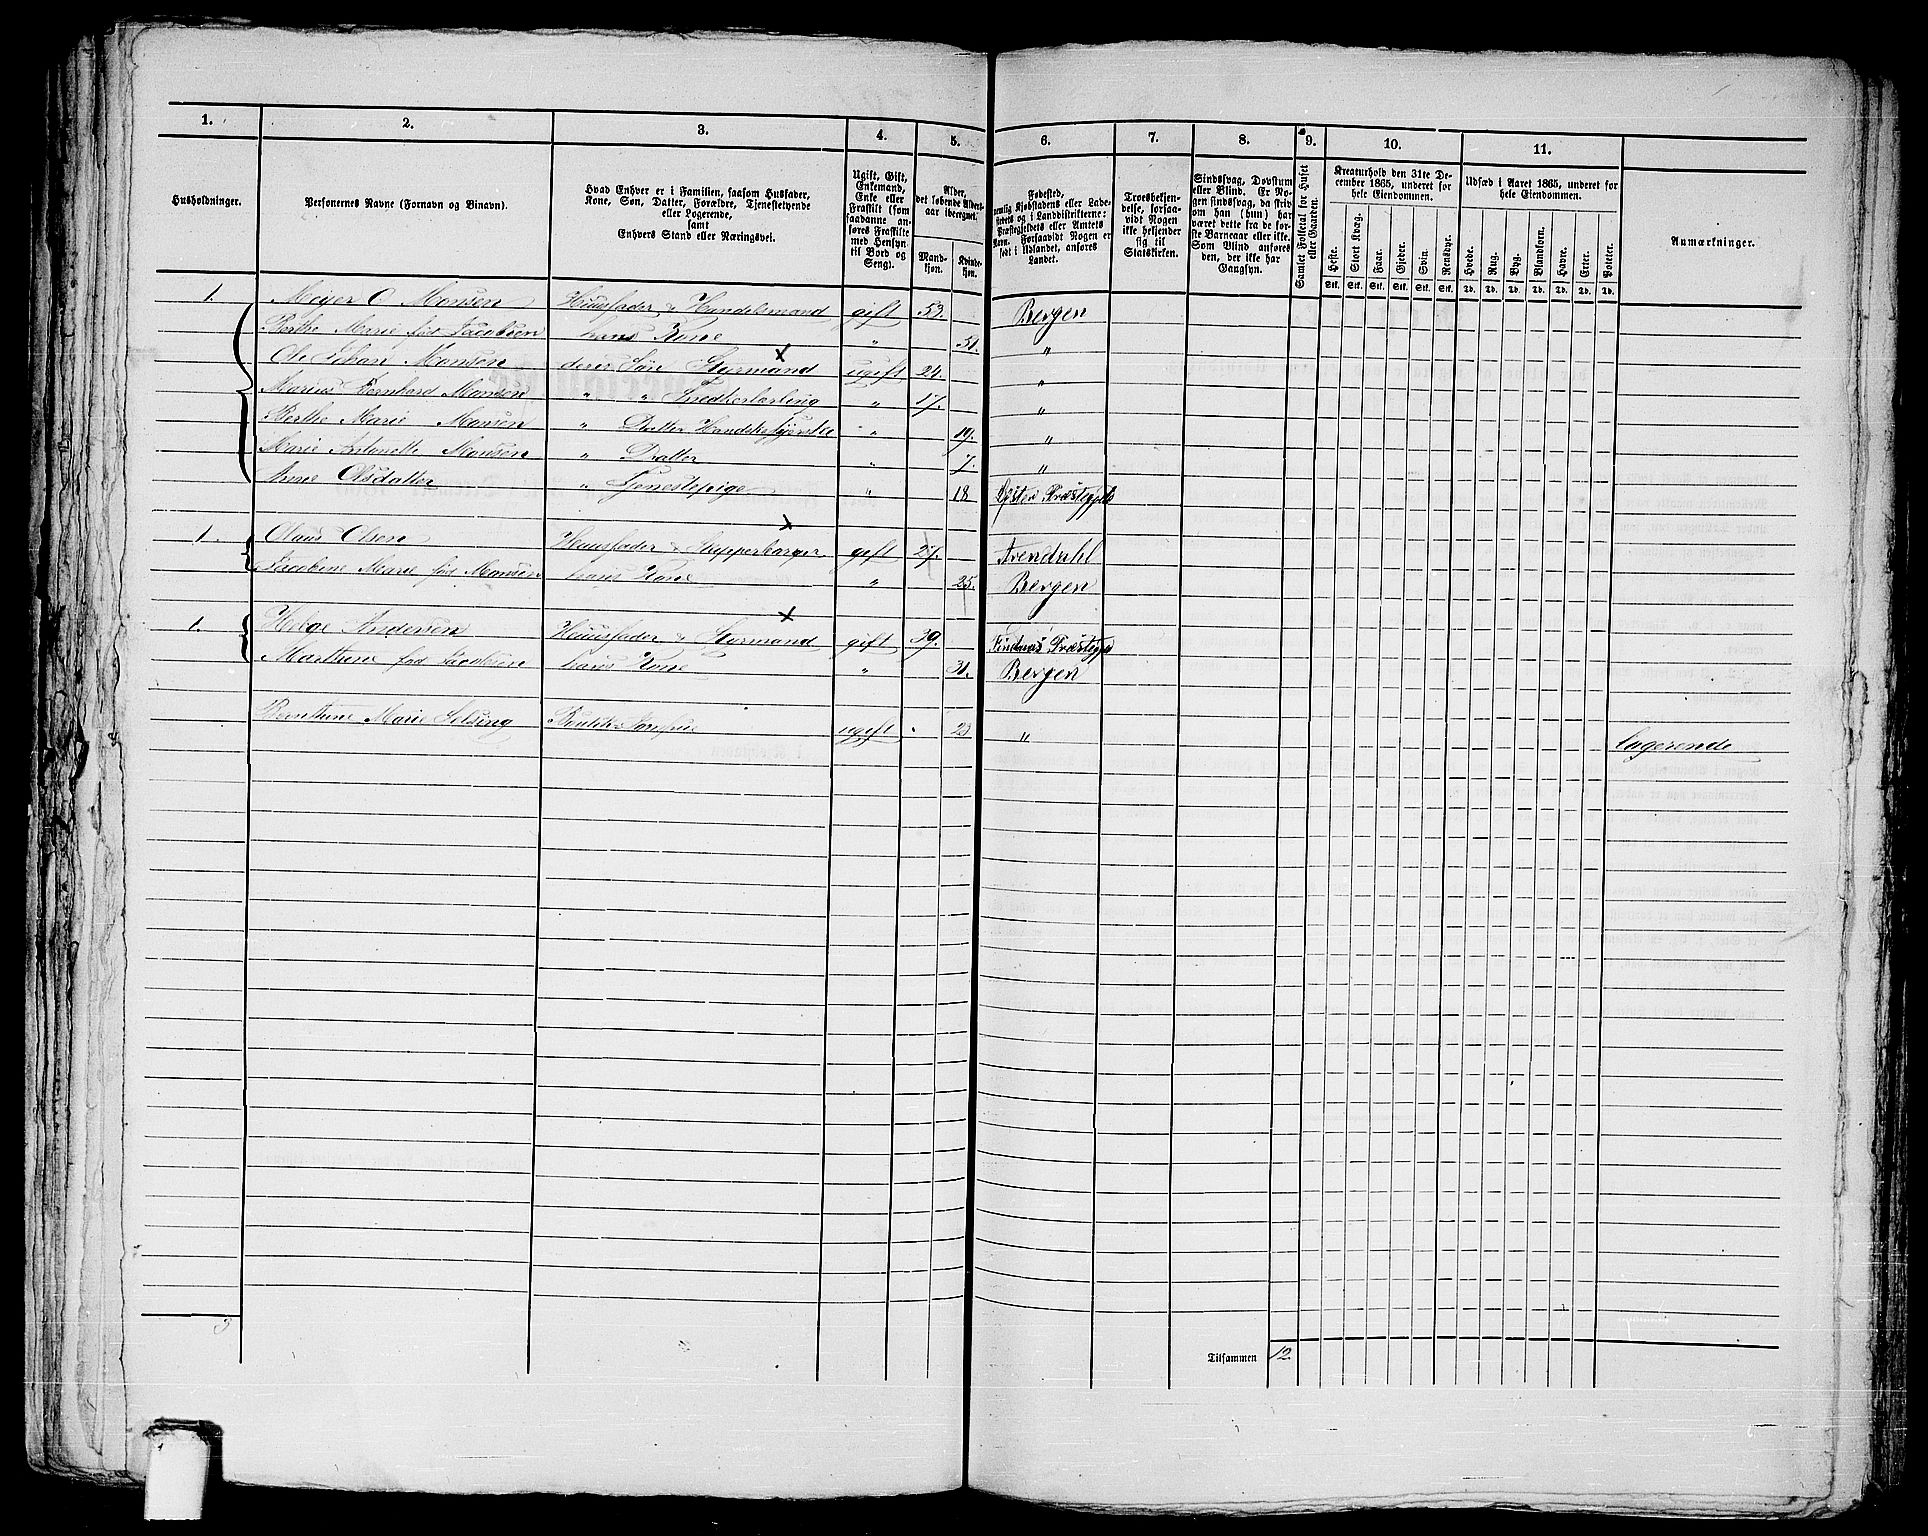 1. 2. 3. 4. 5. 6. 7. 8. 9. 10. 11.
Husholdninger.
Personernes Navne (Fornavn og Binavn).
Hvad Enhver er i Familien, saasom Husfader,
Kone, Søn, Datter, Forældre, Tjenestetyende
eller Logerende,
samt
Enhvers Stand eller Næringsvei.
Ugift, Gift,
Enkemand,
Enke eller
Fraskilt (som
saadanne an-
føres Fraskilte
med Hensyn
til Bord og
Seng).
Alder,
det løbende Alders-
aar iberegnet.
Mand-
kjøn.
Kvinde-
kjøn.
Fødested,
nemlig Kjøbstadens eller Lade-
stedets og i Landdistrikterne:
Præstegjeldets eller Amtets
Navn. Forsaavidt Nogen er
født i Udlandet, anføres
Landet.
Troesbekjen-
delse, forsaa-
vidt Nogen
ikke bekjender
sig til
Statskirken.
Sindssvag, Døvstum
eller Blind. Er No-
gen sindssvag, da skriv
om han (hun) har
været dette fra de før-
ste Barneaar eller ikke.
Som Blind anføres
den, der ikke har
Gangsyn.
Samlet Folketal for Huset
eller Gaarden.
Kreaturhold den 31te De-
cember 1865, underet for
hele Eiendommen.
Heste. Stort Kvæg. Faar. Gjeder. Svin. Rensdyr.
Stk. Stk. Stk. Stk. Stk. Stk.
Udsæd i Aaret 1865, underet for
hele Eiendommen.
Hvede. Rug. Byg. Blandkorn. Havre. Erter. Poteter.
Td. Td. Td. Td. Td. Td. Td.
Anmærkninger.
1. Meyer O Monsen Huusfader & Handelsmand gift 53. Bergen
Berthe Marie fød Jacobsen hans Kone " 51. "
Ole Johan Monsen deres Søn Styrmand ugift 24. "
Marius Bernhard Monsen " " Snedkerlærling " 17. "
Berthe Marie Monsen " Datter " 19. "
Marie Antonette Monsen " Datter " 7. "
Anne Olsdatter " Tjenestepige " 18 Lyster Præstegjeld
1. Claus Olsen Huusfader & gift 27. Arendahl
Jacobine Marie fød Monsen hans Kone " 25. Bergen
1. Helge Andersen Huusfader & Styrmand gift 39. Præstegjeld
Marthine fød Jacobsen hans Kone " 31. Bergen
Marie Selsing ugift 23 " logerende
3
Tilsammen 12.